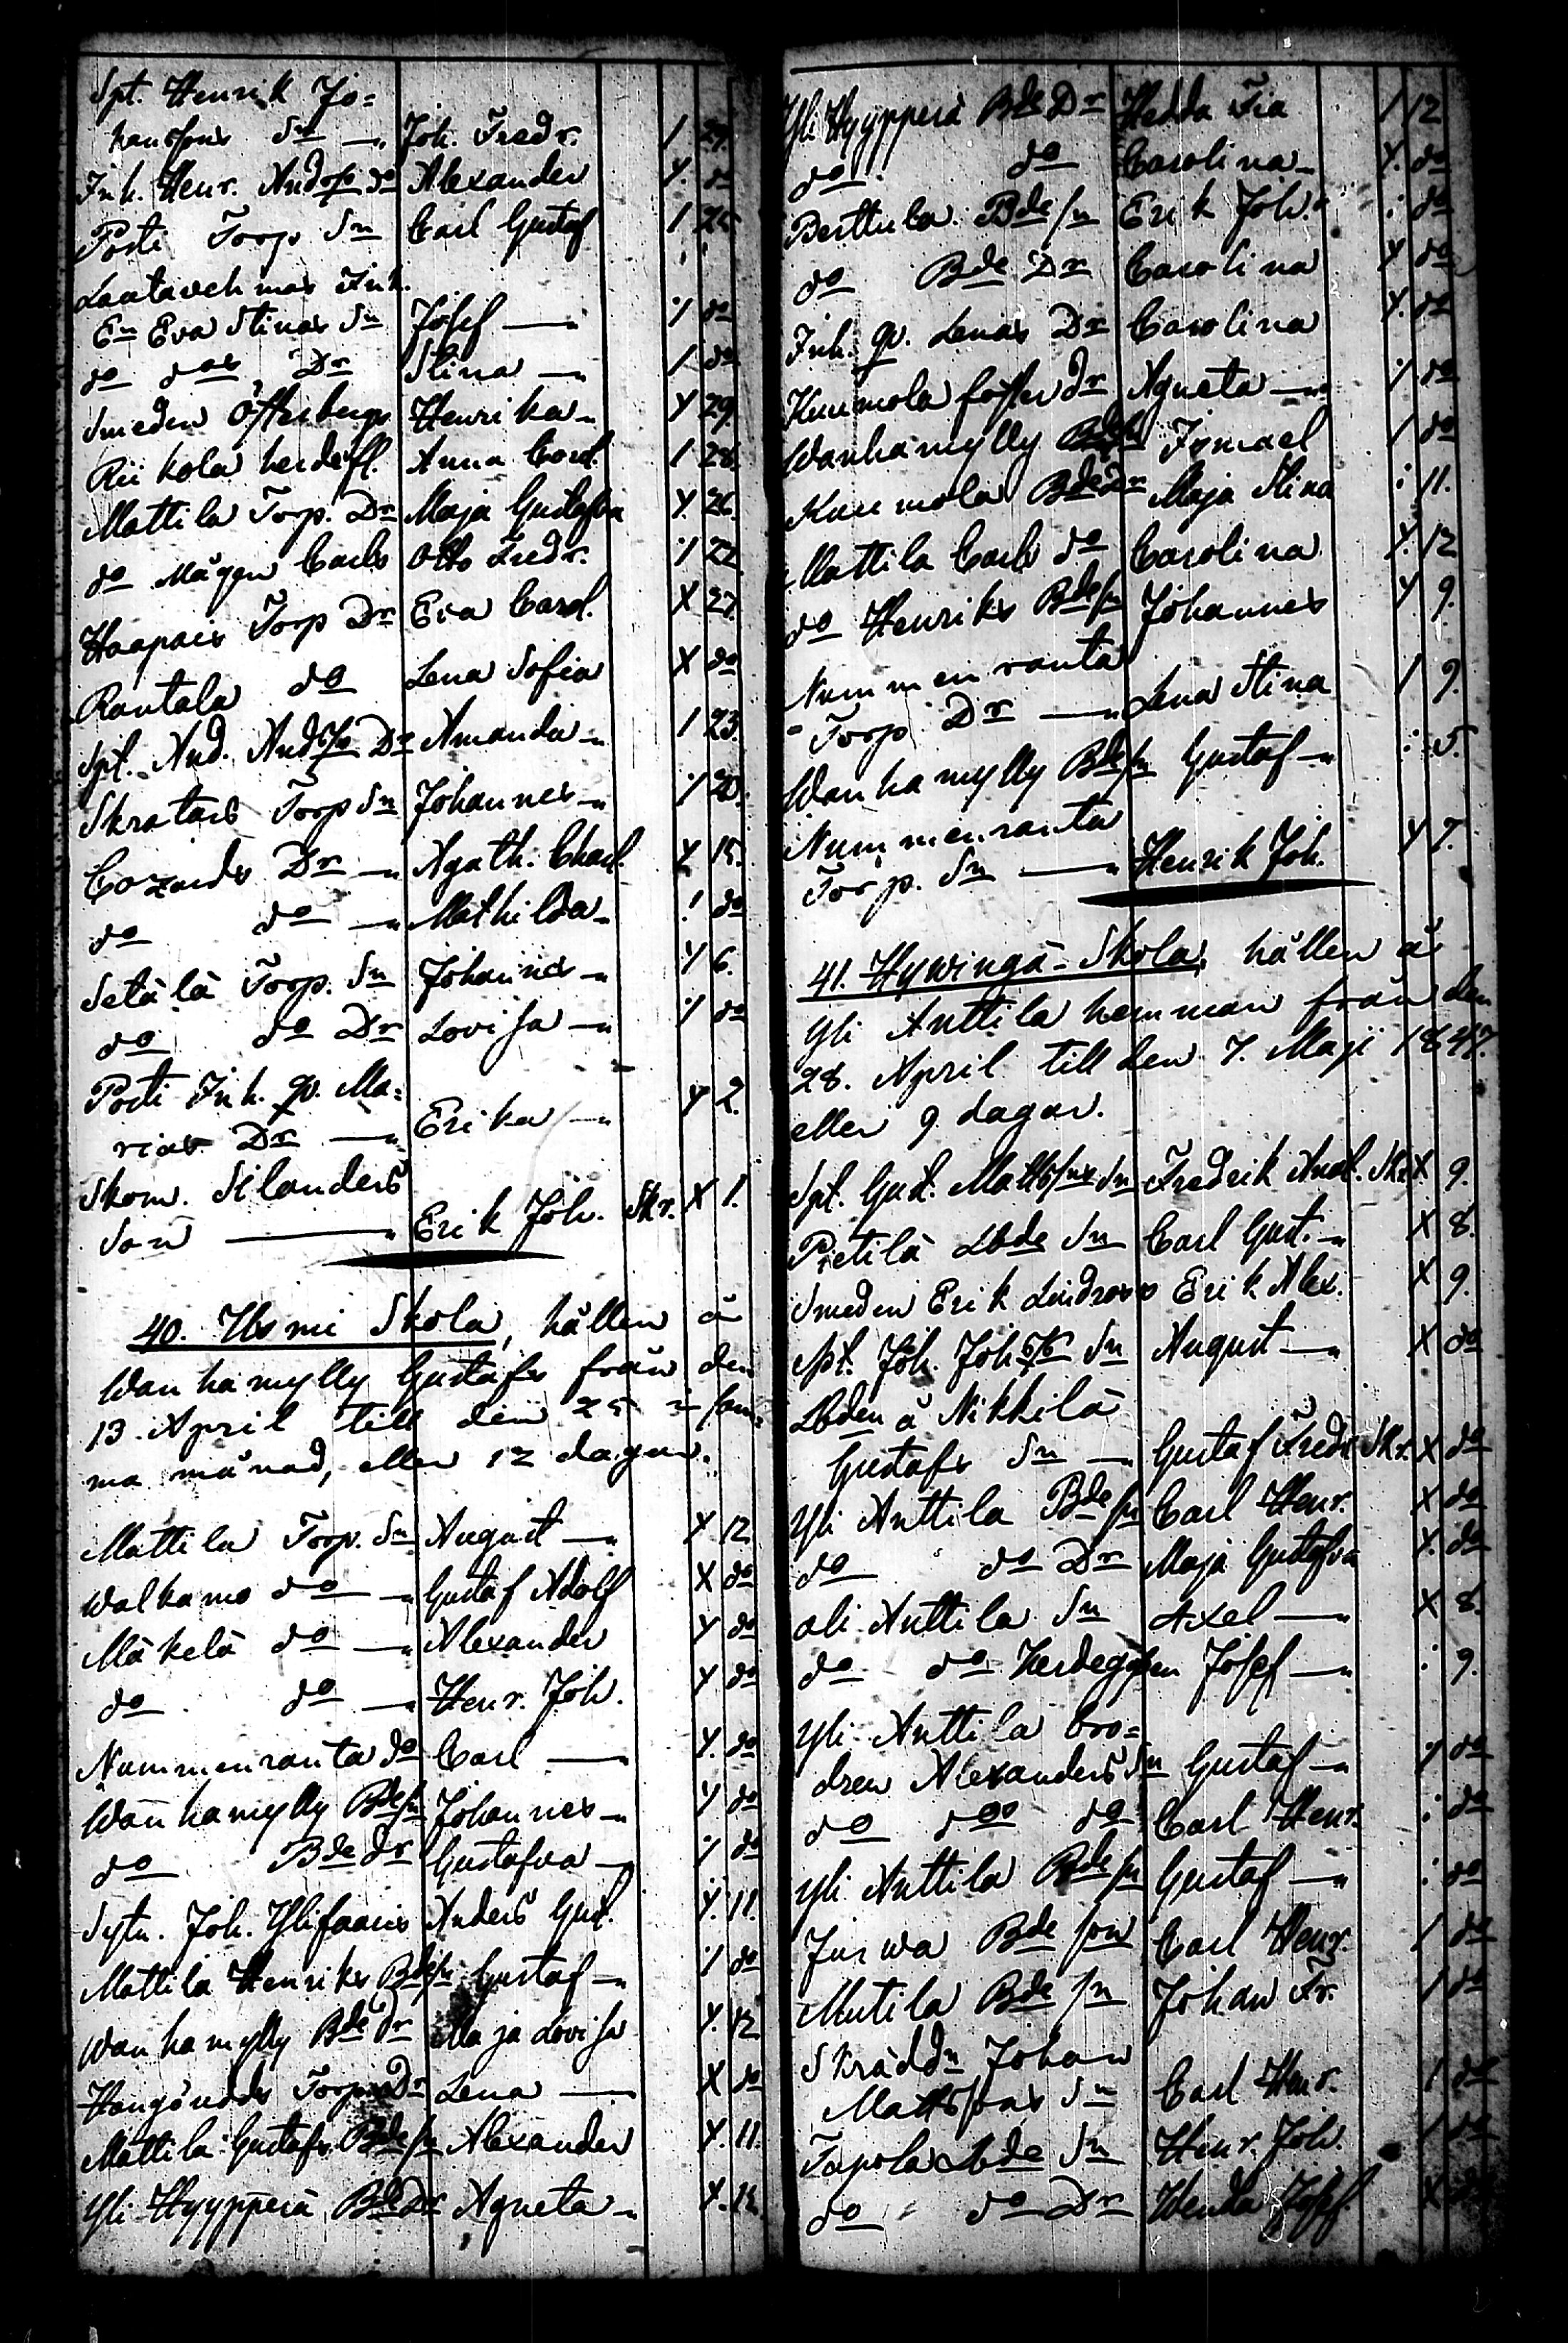 Spt. Henrik Jo=
hanssons Sn — Joh. Fredr. / 29.
Inh. Henr. Andrss do Alexander Y. do
Posti Torp Sn Carl Gustaf / 25
Lautavehmas Inh.
En Eva Stinas Sn Josef — ·/ do
do dos Dr Stina — / do
Smeden Österbergs Henrika Y 29.
Riikola herdefl. Anna Carol. / 28.
Mattila Torp. Dr Maja Gustafva Y. 26.
do Mågen Carls Otto Fredr. ·/ 22
Haapais Torp Dr Eva Carol. X 27.
Rantala do Lena Sofia X do
Spt. And. Andss Dr Amanda / 23.
Skratais Torp Sn Johannes ·/ 20.
Dr — Agath. Charl. Y 15.
do do — Mathilda ·/ do
Setälä Torp. Sn Johannes ·/ 6.
do do Dr Lovisa — ·/ do
Posti Inh. qv. Ma=
rias Dr — Erika — Y 2.
Skom. Silanders
Son — Erik Joh. Skr. X 1.
40. Usmi Skola, hållen å
Wanhamylly Gustafs från den
13. April till den 25 i sam=
ma månad, eller 12 dagar.
Mattila Torp. Sn August — Y 12
Walkamo do — Gustaf Adolf X do
Mäkelä do — Alexander Y do
do do — Henr. Joh. Y do
Nummenranta do Carl — Y. do
Wanhamylly Bde sn Johannes Y do
do Bde dr Gustafva ·/ do
Sytn. Joh. Ylifaaris Anders Gust. Y. 11.
Mattila Henriks Bde sn Gustaf ·/ do
Wanhamylly Bde dr Maja Lovisa Y. 12
Hangöudds Torp. Dr Lena — X do
Mattila Gustafs Bde sn Alexander Y. 11.
Yli Hyypperä Bde Dr Agneta Y. 12.
Yli Hyypperä Bde Dr Hedda Fia / 12
do do Carolina Y. do
Berttula Bde sn Erik Joh. ·/· do
do Bde Dr Carolina Y do
Inh. qv. Lenas Dr Carolina Y. do
Kuumola foster dr Agneta — ·/ do
Wanhamylly Bde sn Ismael / do
Kuumola Bde Dr Maja Stina ·/· 11.
Mattila Carls do Carolina Y. 12
do Henriks Bde sn Johannes Y 9.
Nummenranta
Torp Dr — Lena Stina / 9.
Wanhamylly Bde sn Gustaf ·/· 5.
Nummenranta
Torp. Sn — Henrik Joh. Y 7.
41. Hywingä Skola, hållen å
Yli Anttila hemman från den
28. April till den 7. Maji 1847.
eller 9 dagar.
Spt. Gust. Mattssons Sn Fredrik Anal. Skr. X 9.
Pietilä Lbde Sn Carl Gust. X 8.
Smeden Erik Lindroos Erik Alex. X 9.
Spt. Joh. Johss Sn August — X do
Lbden å Nikkilä
Gustafs Sn — Gustaf Fredr. Skr. X do
Yli Anttila Bde sn Carl Henr. X do
do do Dr Maja Gustafva Y. do
Ali Anttila Sn Axel — X 8.
do do Herdegossen Josef — ·/· 9.
Yli Anttila bro=
dren Alexanders Sn Gustaf ·/ do
do dos do Carl Henr. ·/· do
Yli Anttila Bde sn Gustaf — ·/· do
Jurwa Bde son Carl Henr. / do
Mutila Bde sn Johan Fr. / do
Skräddn Johan
Mattssons Sn Carl Henr. / do
Tapola Lbde Sn Henr. Joh. / do
do do Dr Josef. X do